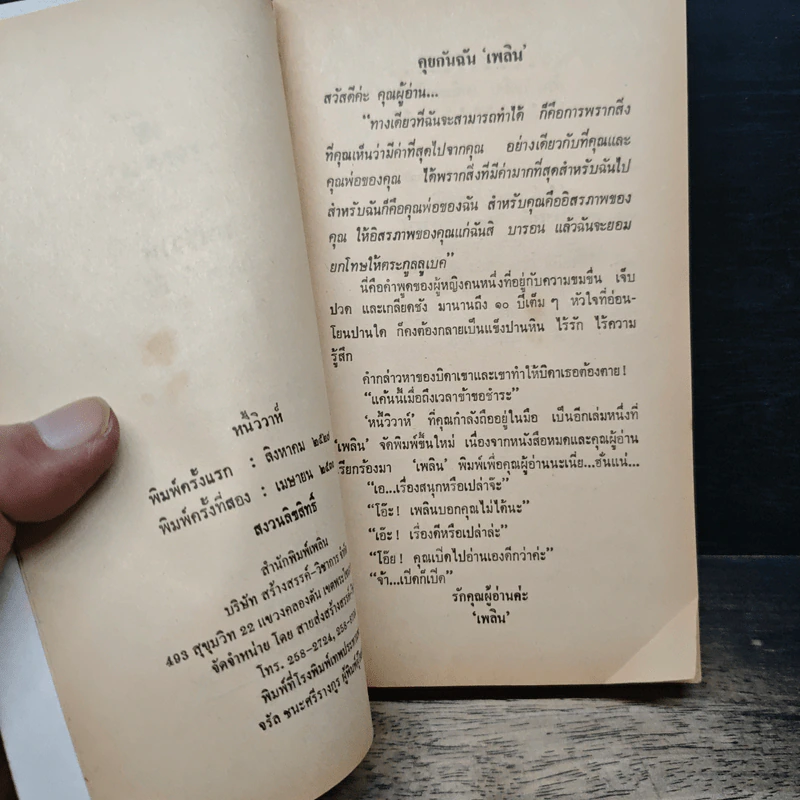 หนี้วิวาห์
พิมพ์ครั้งแรก : สิงหาคม ๒๕๒๙
พิมพ์ครั้งที่สอง : เมษายน ๒๕๓๓
สงวนลิขสิทธิ์
สำนักพิมพ์เพลิน
บริษัท สร้างสรรค์-วิชาการ จำกัด
493 สุขุมวิท 22 แขวงคลองตัน เขตพระโขนง
จัดจำหน่าย โดย สายส่งสร้างสรรค์-
โทร. 258-2724, 258-
พิมพ์ที่โรงพิมพ์เทพประทาน
จรัล ชนะศรีรางกูร ผู้พิมพ์ผู้
คุยกันฉัน ‘เพลิน’
สวัสดีค่ะ คุณผู้อ่าน...
“ทางเดียวที่ฉันจะสามารถทำได้ ก็คือการพรากสิ่ง
ที่คุณเห็นว่ามีค่าที่สุดไปจากคุณ อย่างเดียวกับที่คุณและ
คุณพ่อของคุณ ได้พรากสิ่งที่มีค่ามากที่สุดสำหรับฉันไป
สำหรับฉันก็คือคุณพ่อของฉัน สำหรับคุณคืออิสรภาพของ
คุณ ให้อิสรภาพของคุณแก่ฉันสิ บารอน แล้วฉันจะยอม
ยกโทษให้ตระกูลลูเบค”
นี่คือคำพูดของผู้หญิงคนหนึ่งที่อยู่กับความขมขื่น เจ็บ
ปวด และเกลียดชัง มานานถึง ๑๐ ปีเต็ม ๆ หัวใจที่อ่อน-
โยนปานใด ก็คงต้องกลายเป็นแข็งปานหิน ไร้รัก ไร้ความ
รู้สึก
คำกล่าวหาของบิดาเขาและเขาทำให้บิดาเธอต้องตาย!
“แค้นนี้เมื่อถึงเวลาข้าขอชำระ”
‘หนี้วิวาห์’ ที่คุณกำลังถืออยู่ในมือ เป็นอีกเล่มหนึ่งที่
‘เพลิน’ จัดพิมพ์ขึ้นใหม่ เนื่องจากหนังสือหมดและคุณผู้อ่าน
เรียกร้องมา ‘เพลิน’ พิมพ์เพื่อคุณผู้อ่านนะเนี่ย...ฮั่นแน่...
“เอ...เรื่องสนุกหรือเปล่าจ๊ะ”
“โอ๊ะ! เพลินบอกคุณไม่ได้นะ”
“เอ๊ะ! เรื่องดีหรือเปล่าล่ะ”
“โอ๊ย! คุณเปิดไปอ่านเองดีกว่าค่ะ”
“จ้า...เปิดก็เปิด”
รักคุณผู้อ่านค่ะ
‘เพลิน’